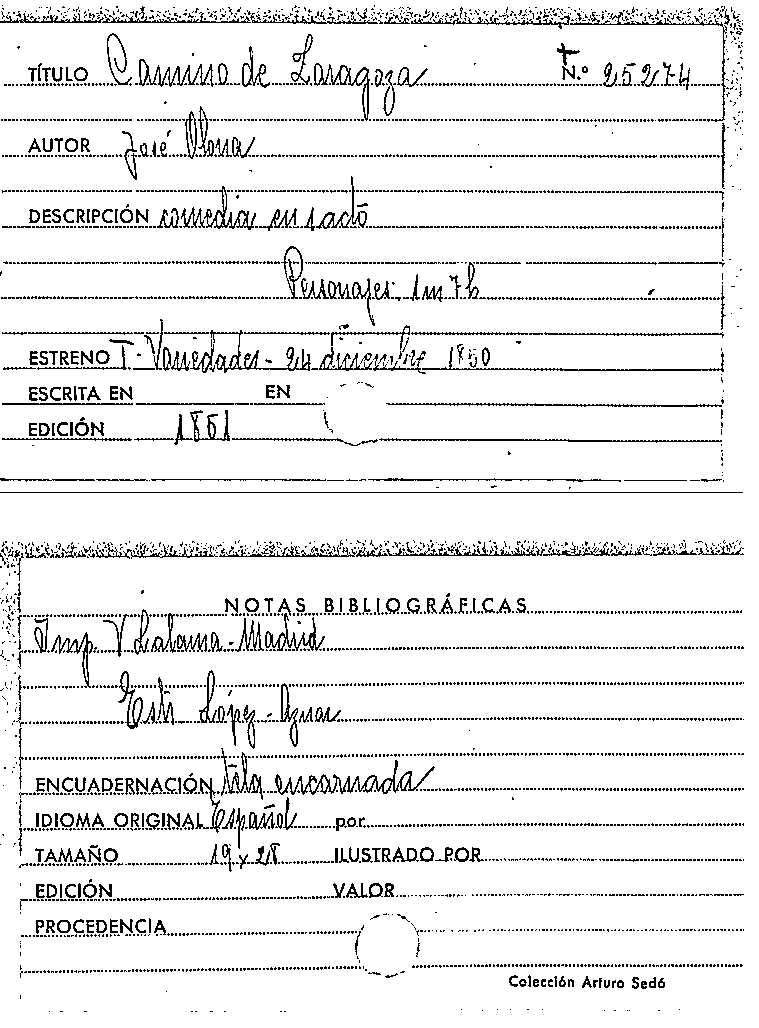 TÍTULO Camino de Zaragoza N.º 25274
AUTOR José Olona
DESCRIPCIÓN comedia en 1 acto
Personajes. 1m 7h
ESTRENO T. Variedades - 24 diciembre 1850
ESCRITA EN EN
EDICIÓN 1851
NOTAS BIBLIOGRÁFICAS
Imp. V Lalama - Madrid
Estr López - Aznar
ENCUADERNACIÓN tela encarnada
IDIOMA ORIGINAL Español por
TAMAÑO 19 x 28 ILUSTRADO POR
EDICIÓN VALOR
PROCEDENCIA
Colección Arturo Sedó